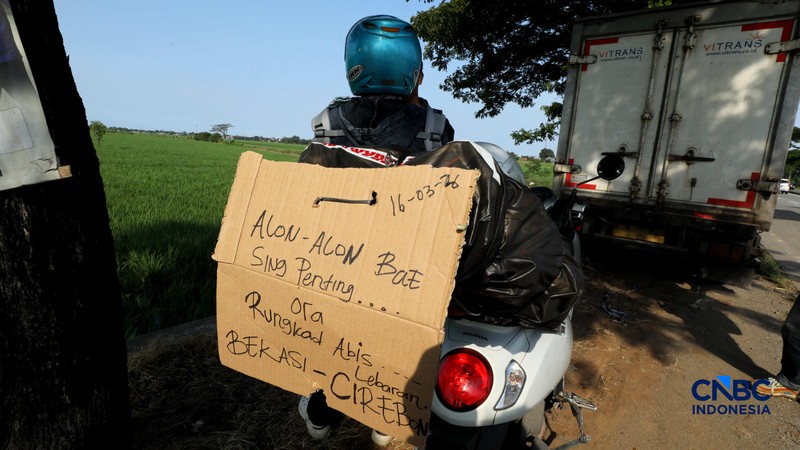 16-03-26
ALON-ALON BAE
Sing Penting....
Ora
Rungkad Abis....
Lebaran.
BEKASI - CIREBON
VITRANS
VITRANS
CNBC
INDONESIA